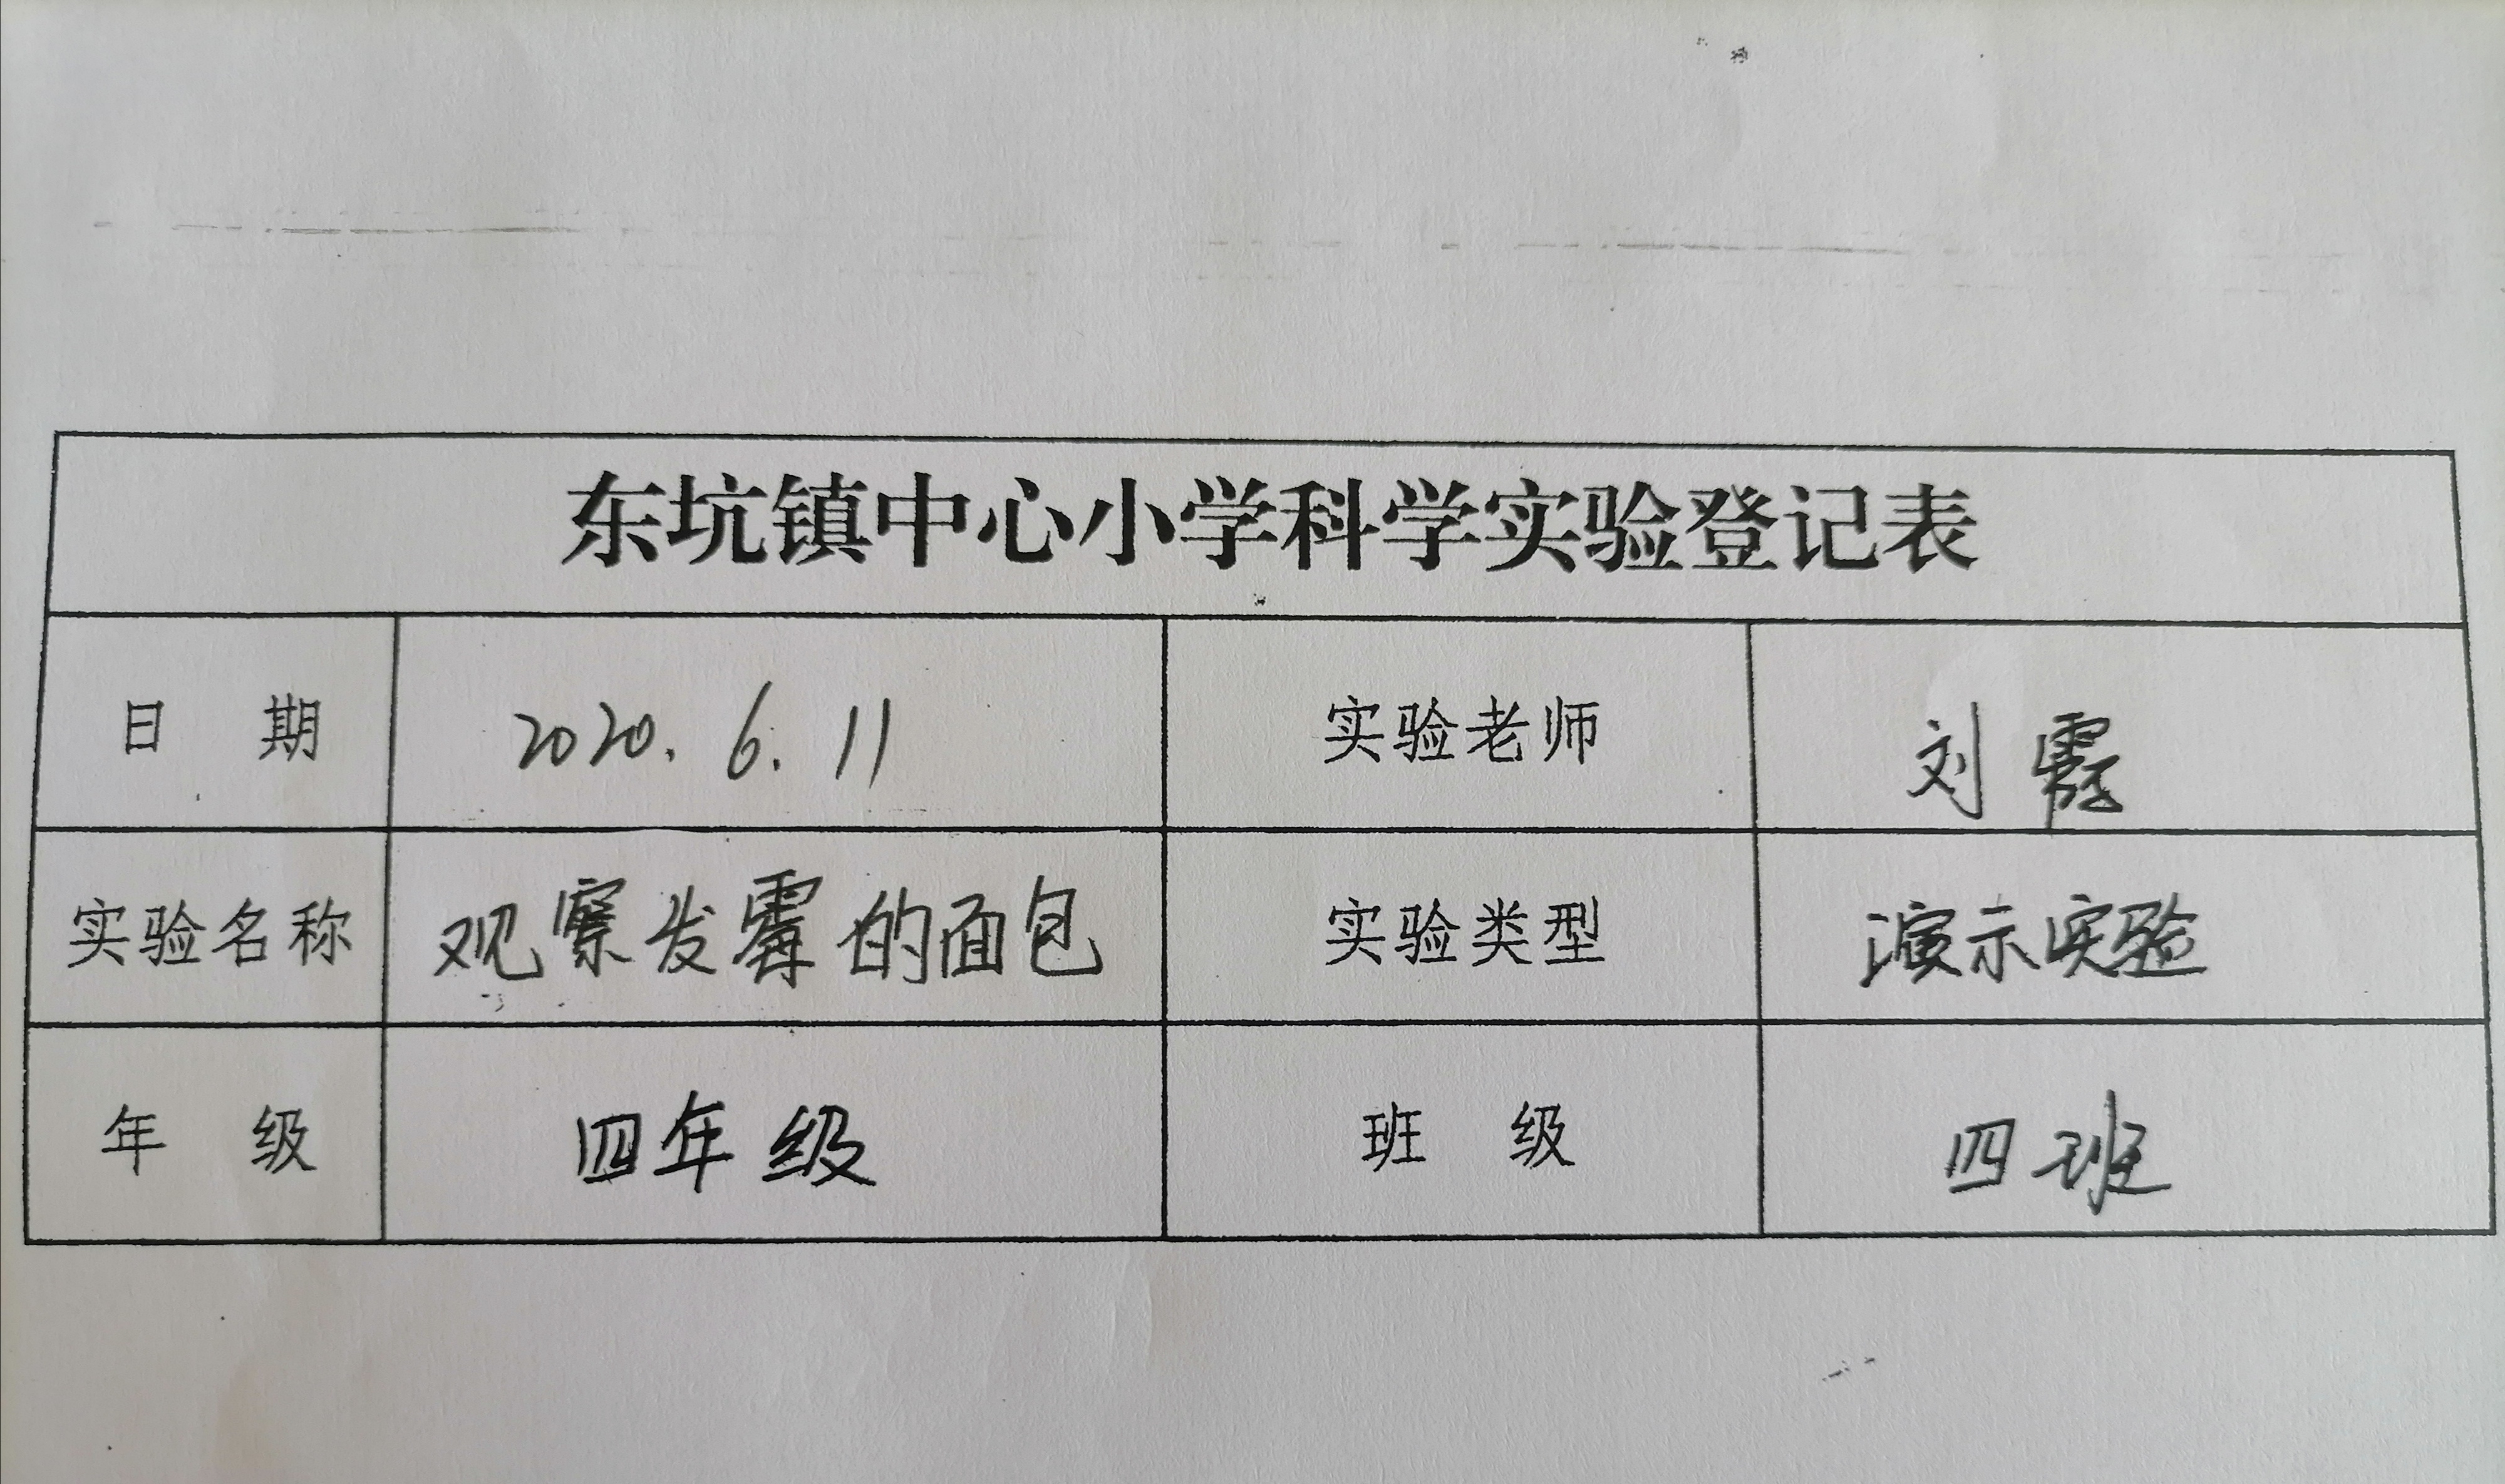 东坑镇中心小学科学实验登记表
日 期 2020.6.11 实验老师 刘霞
实验名称 观察发霉的面包 实验类型 演示实验
年 级 四年级 班 级 四班